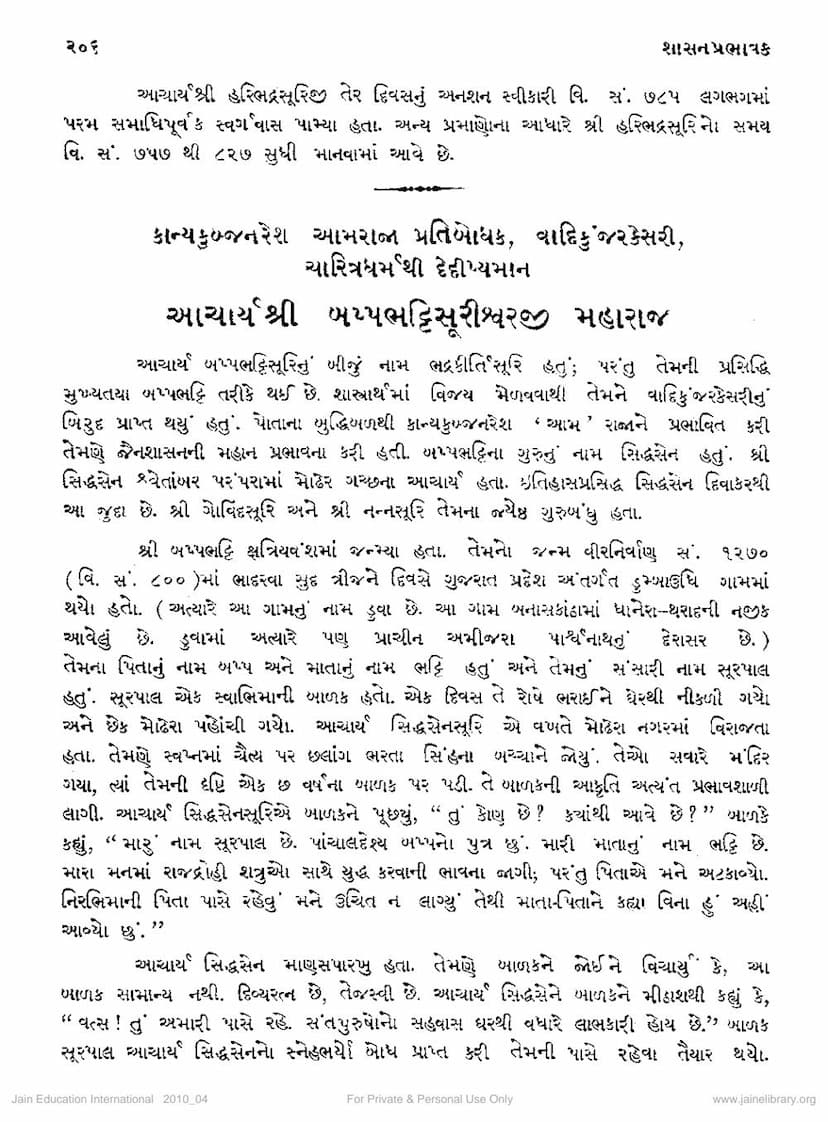 ૨૦૬ શાસનપ્રભાવક
આચાર્યશ્રી હરિભદ્રસૂરિજી તેર દિવસનું અનશન સ્વીકારી વિ. સં. ૭૮૫ લગભગમાં
પરમ સમાધિપૂર્વક સ્વર્ગવાસ પામ્યા હતા. અન્ય પ્રમાણોના આધારે શ્રી હરિભદ્રસૂરિનો સમય
વિ. સં. ૭૫૭ થી ૮૨૭ સુધી માનવામાં આવે છે.
કાન્યકુબ્જનરેશ આમરાજા પ્રતિબોધક, વાદિકુંજરકેસરી,
ચારિત્રધર્મથી દેદીપ્યમાન
આચાર્યશ્રી બપ્પભટ્ટિસૂરીશ્વરજી મહારાજ
આચાર્ય બપ્પભટ્ટિસૂરિનું બીજું નામ ભદ્રકીર્તિસૂરિ હતું; પરંતુ તેમની પ્રસિદ્ધિ
મુખ્યતયા બપ્પભટ્ટિ તરીકે થઈ છે. શાસ્ત્રાર્થમાં વિજય મેળવવાથી તેમને વાદિકુંજરકેસરીનું
બિરુદ પ્રાપ્ત થયું હતું. પોતાના બુદ્ધિબળથી કાન્યકુબ્જનરેશ ‘આમ’ રાજાને પ્રભાવિત કરી
તેમણે જૈનશાસનની મહાન પ્રભાવના કરી હતી. બપ્પભટ્ટિના ગુરુનું નામ સિદ્ધસેન હતું. શ્રી
સિદ્ધસેન શ્વેતાંબર પરંપરામાં મોઢેર ગચ્છના આચાર્ય હતા. ઇતિહાસપ્રસિદ્ધ સિદ્ધસેન દિવાકરથી
આ જુદા છે. શ્રી ગોવિંદસૂરિ અને શ્રી નન્નસૂરિ તેમના જ્યેષ્ઠ ગુરુબંધુ હતા.
શ્રી બપ્પભટ્ટિ ક્ષત્રિયવંશમાં જન્મ્યા હતા. તેમનો જન્મ વીરનિર્વાણ સં. ૧૨૭૦
(વિ. સં. ૮૦૦)માં ભાદરવા સુદ ત્રીજને દિવસે ગુજરાત પ્રદેશ અંતર્ગત ડુમ્બાઉધિ ગામમાં
થયો હતો. (અત્યારે આ ગામનું નામ ડુવા છે. આ ગામ બનાસકાંઠામાં ધાનેરા–થરાદની નજીક
આવેલું છે. ડુવામાં અત્યારે પણ પ્રાચીન અમીજરા પાર્શ્વનાથનું દેરાસર છે.)
તેમના પિતાનું નામ બપ્પ અને માતાનું નામ ભટ્ટિ હતું અને તેમનું સંસારી નામ સૂરપાલ
હતું. સૂરપાલ એક સ્વાભિમાની બાળક હતો. એક દિવસ તે રોષે ભરાઈને ઘેરથી નીકળી ગયો
અને છેક મોઢેરા પહોંચી ગયો. આચાર્ય સિદ્ધસેનસૂરિ એ વખતે મોઢેરા નગરમાં વિરાજતા
હતા. તેમણે સ્વપ્નમાં ચૈત્ય પર છલાંગ ભરતા સિંહના બચ્ચાને જોયું. તેઓ સવારે મંદિર
ગયા, ત્યાં તેમની દૃષ્ટિ એક છ વર્ષના બાળક પર પડી. તે બાળકની આકૃતિ અત્યંત પ્રભાવશાળી
લાગી. આચાર્ય સિદ્ધસેનસૂરિએ બાળકને પૂછયું, “તું કોણ છે? કયાંથી આવે છે?” બાળકે
કહ્યું, “મારું નામ સૂરપાલ છે. પાંચાલદેશ્ય બપ્પનો પુત્ર છું. મારી માતાનું નામ ભટ્ટિ છે.
મારા મનમાં રાજદ્રોહી શત્રુઓ સાથે યુદ્ધ કરવાની ભાવના જાગી; પરંતુ પિતાએ મને અટકાવ્યો.
નિરભિમાની પિતા પાસે રહેવું મને ઉચિત ન લાગ્યું તેથી માતા-પિતાને કહ્યા વિના હું અહીં
આવ્યો છું.”
આચાર્ય સિદ્ધસેન માણસપારખુ હતા. તેમણે બાળકને જોઈને વિચાર્યું કે, આ
બાળક સામાન્ય નથી. દિવ્યરત્ન છે, તેજસ્વી છે. આચાર્ય સિદ્ધસેને બાળકને મીઠાશથી કહ્યું કે,
“વત્સ! તું અમારી પાસે રહે. સંતપુરુષોનો સહવાસ ઘરથી વધારે લાભકારી હોય છે.” બાળક
સૂરપાલ આચાર્ય સિદ્ધસેનનો સ્નેહભર્યો બોધ પ્રાપ્ત કરી તેમની પાસે રહેવા તૈયાર થયો.
Jain Education International 2010_04 For Private & Personal Use Only www.jainelibrary.org